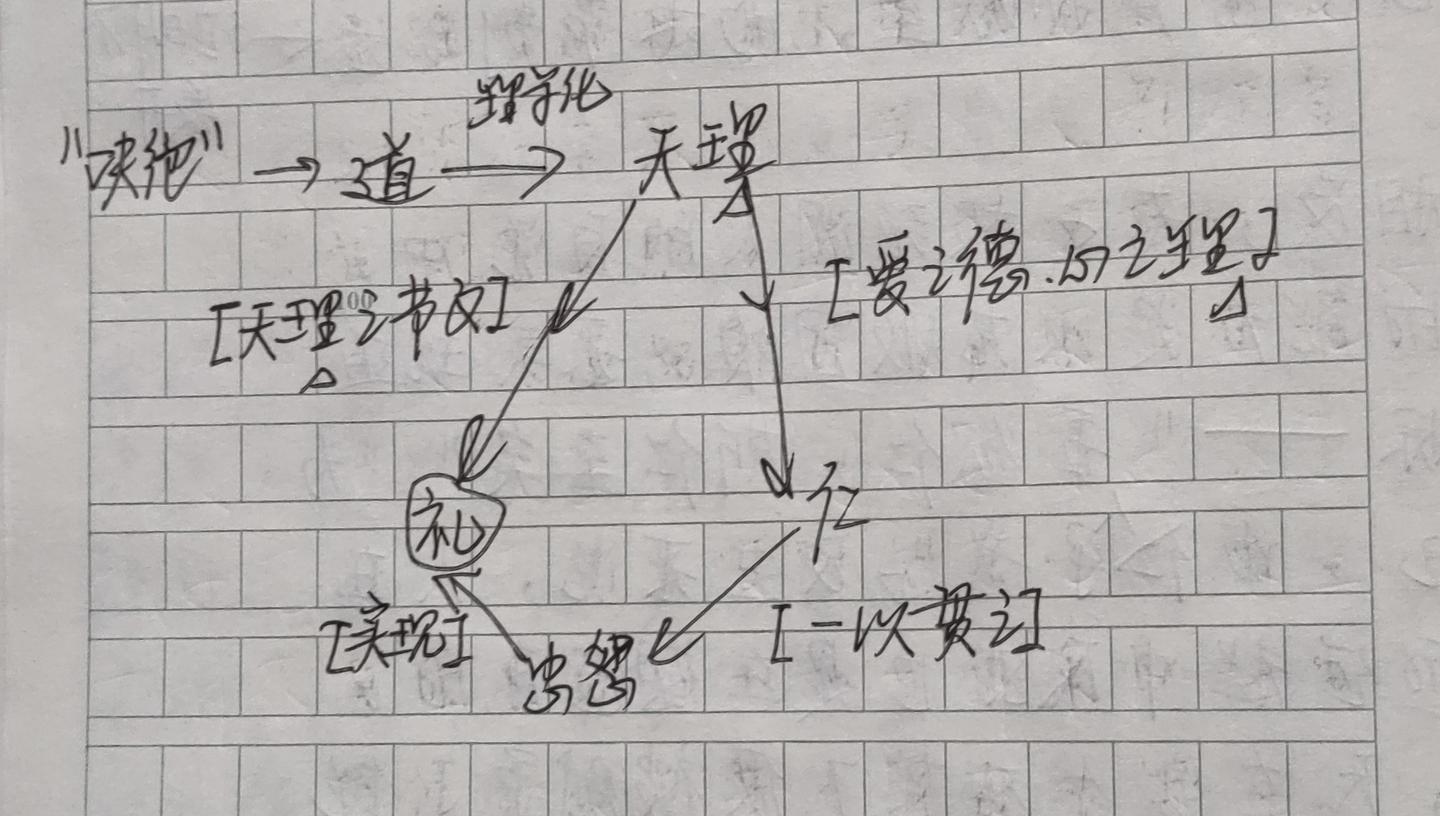 理学化
"决绝" → 道 → 天理
[爱之德.心之理]
[天理之节文]
礼
仁
[实现]
忠恕
[一以贯之]